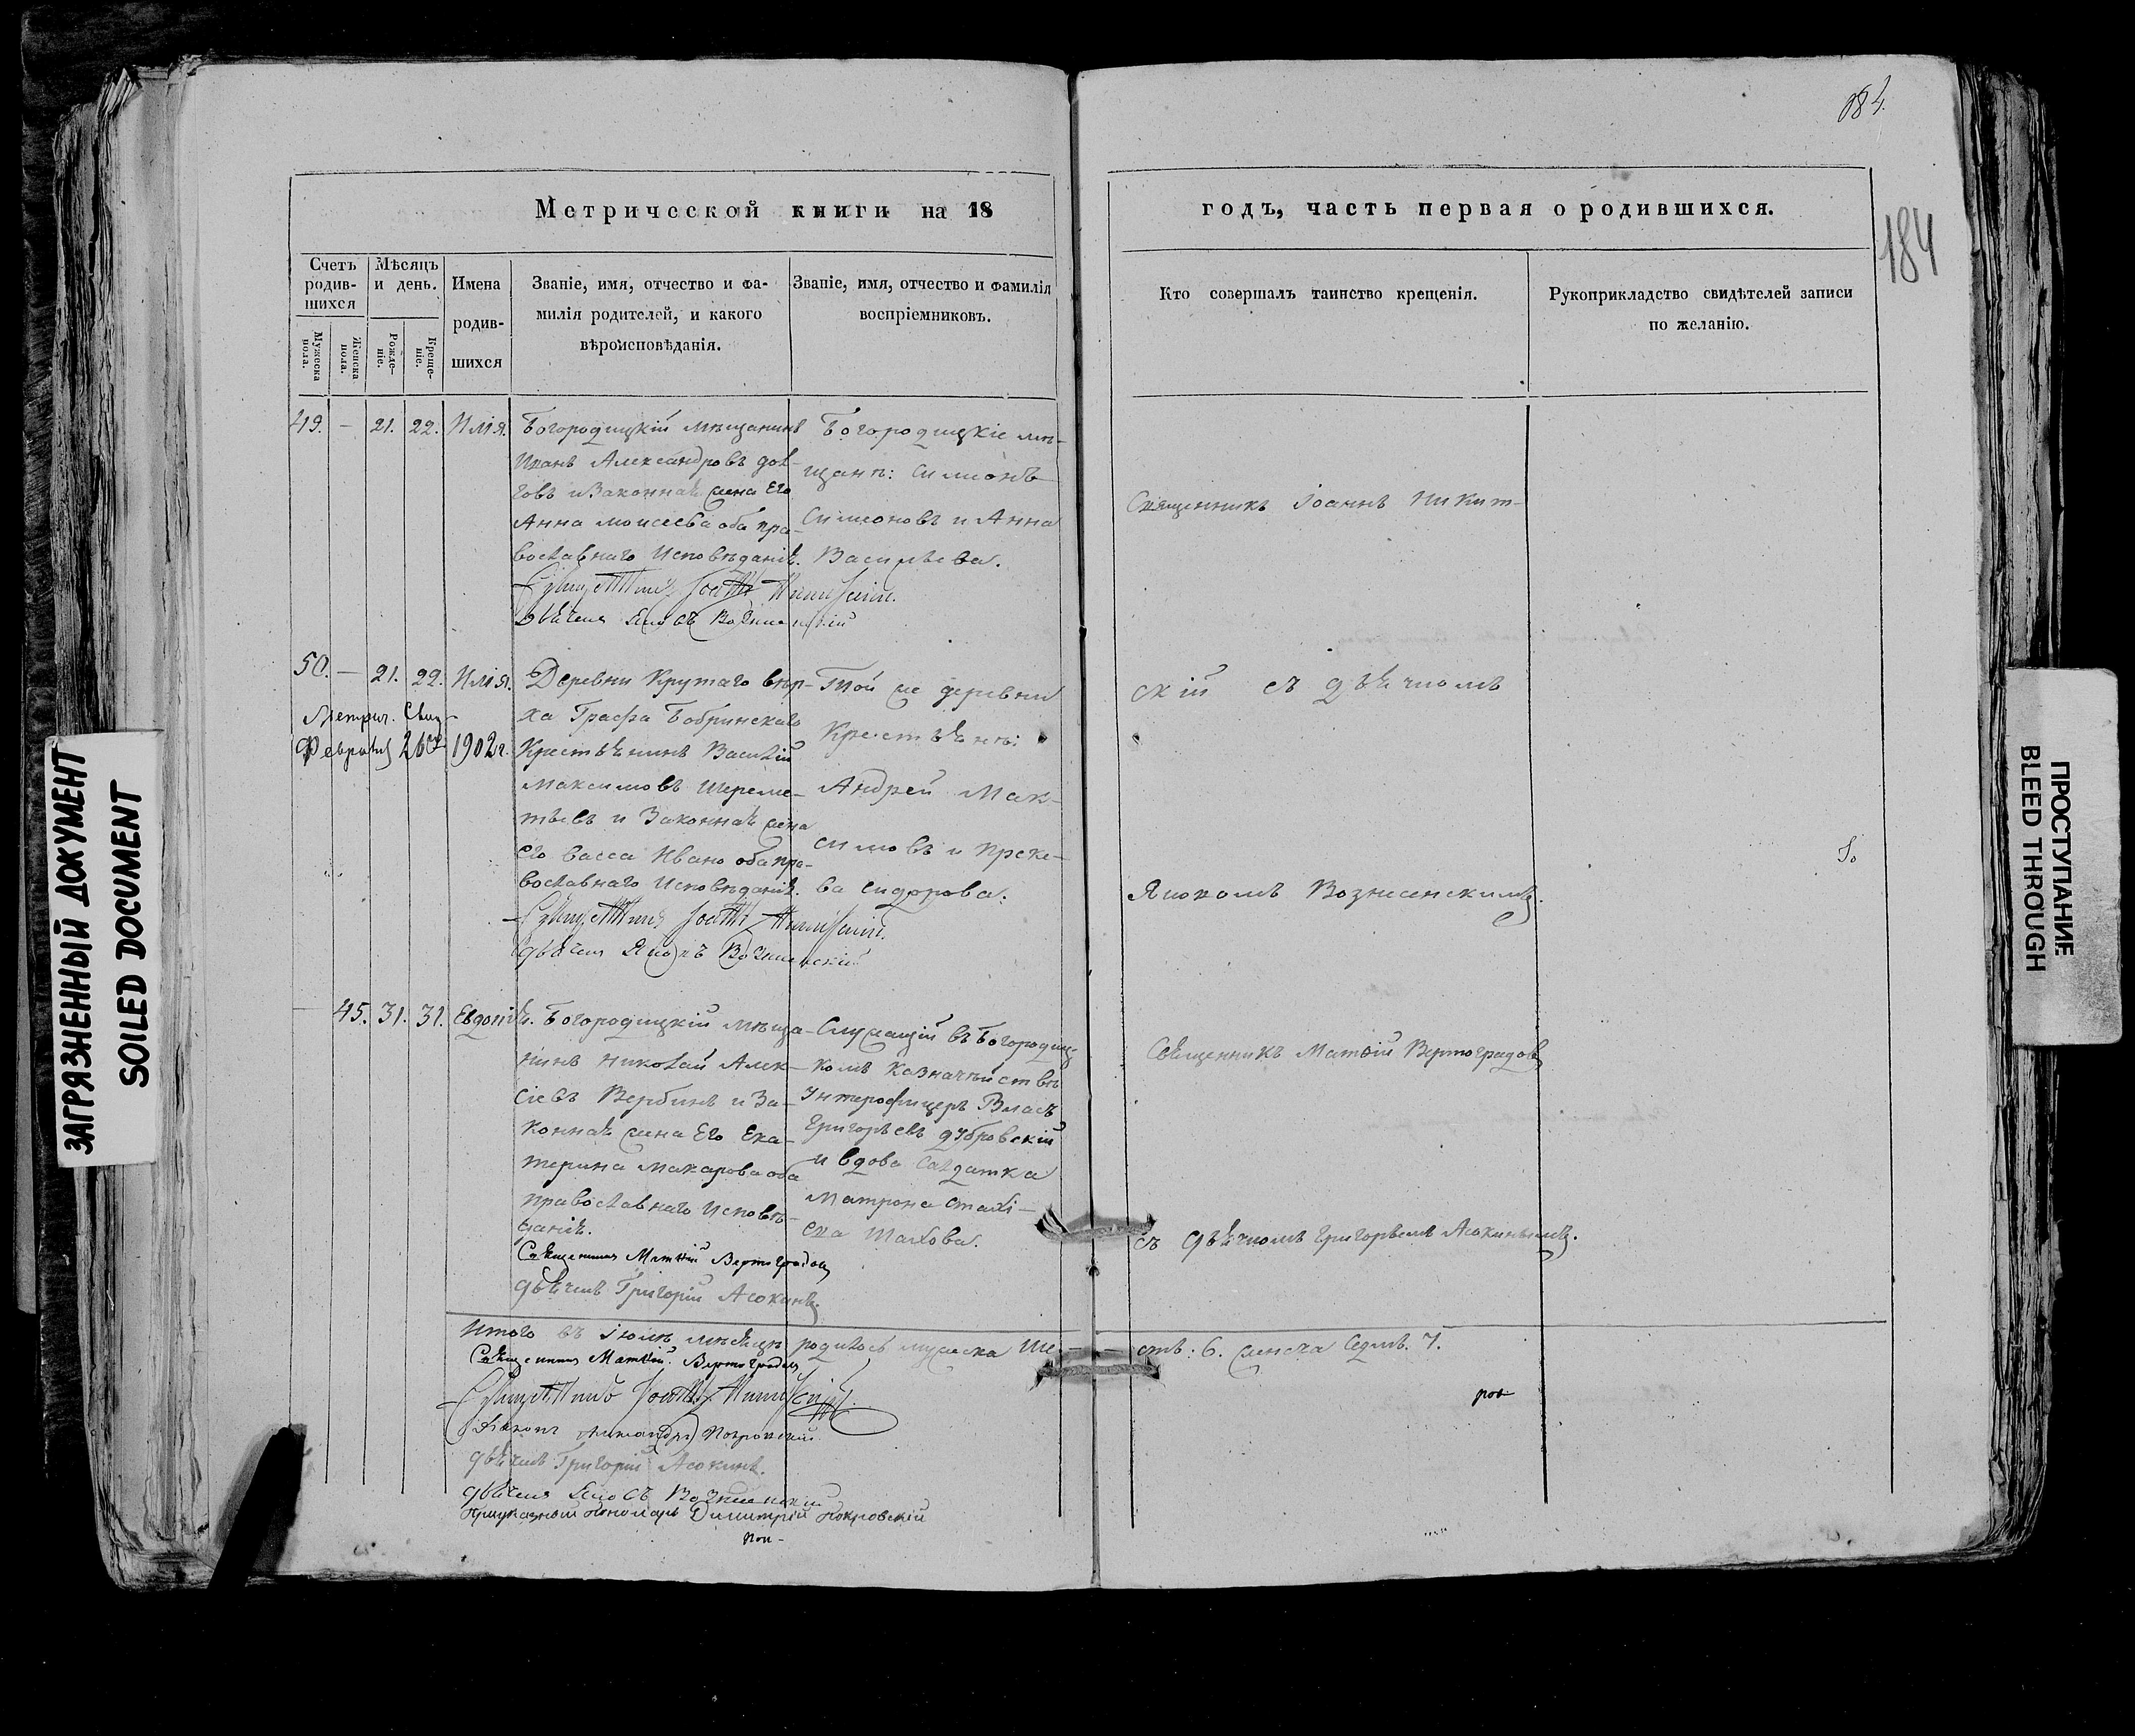 184.
184
Метрической книги на 18
годъ, часть первая о родившихся.
Счетъ родив-шихся
Мужеска пола.
Женска пола.
Мѣсяцъ и день.
Рожде-ніе.
Креще-ніе.
Имена
родив-
шихся
Званіе, имя, отчество и фа-
милія родителей, и какого
вѣроисповѣданія.
Званіе, имя, отчество и фамилія
воспріемниковъ.
Кто совершалъ таинство крещенія.
Рукоприкладство свидѣтелей записи
по желанію.
49. — 21. 22. Илія.
Богородицкій мѣщанинъ
Иванъ Александровъ
и Законная жена Его
Анна Моисеева оба пра-
вославнаго Исповѣданія.
Богородицкіе мѣ-
щане: Симеонъ
Симеоновъ и Анна
Васильева.
Священникъ Іоаннъ Никит-
50. — 21. 22. Илія.
Метрич. Свид
Февраля 26 1902 г.
Деревни Крутаго
Графа Бобринскаго
Крестьянинъ Василій
Максимовъ Шереме-
тьевъ и Законная жена
Его Васса Ивано оба пра-
вославнаго Исповѣданія.
Той же деревни
Крестьяне:
Андрей Мак-
симовъ и Праске-
ва Сидорова.
скій съ дьячкомъ
Яковомъ Вознесенскимъ.
45. 31. 31. Евдокія.
Богородицкій мѣща-
нинъ Николай Алек-
сѣевъ Вербинъ и За-
конная жена Его Ека-
терина Макарова оба
православнаго Исповѣ-
данія.
Священникъ Матвій Вертоградовъ
дьячекъ Григорій Асокинъ.
Служащій въ Богородиц-
комъ Казначействѣ
Унтерофицеръ Власъ
Григорьевъ Дубровскій
и вдова Салдатка
Матрона
Священникъ Матвій Вертоградовъ
съ дьячкомъ Григорьемъ Асокинымъ.
Итого въ Іюлѣ мѣсяцѣ родилось мужеска ше-
сть: 6. женска Седмь. 7.
Священникъ Матвій Вертоградовъ
Діаконъ Александръ Покровскій
дьячекъ Григорій Асокинъ.
Пономарь Димитрій Покровскій
ЗАГРЯЗНЕННЫЙ ДОКУМЕНТ
SOILED DOCUMENT
ПРОСТУПАНИЕ
BLEED THROUGH